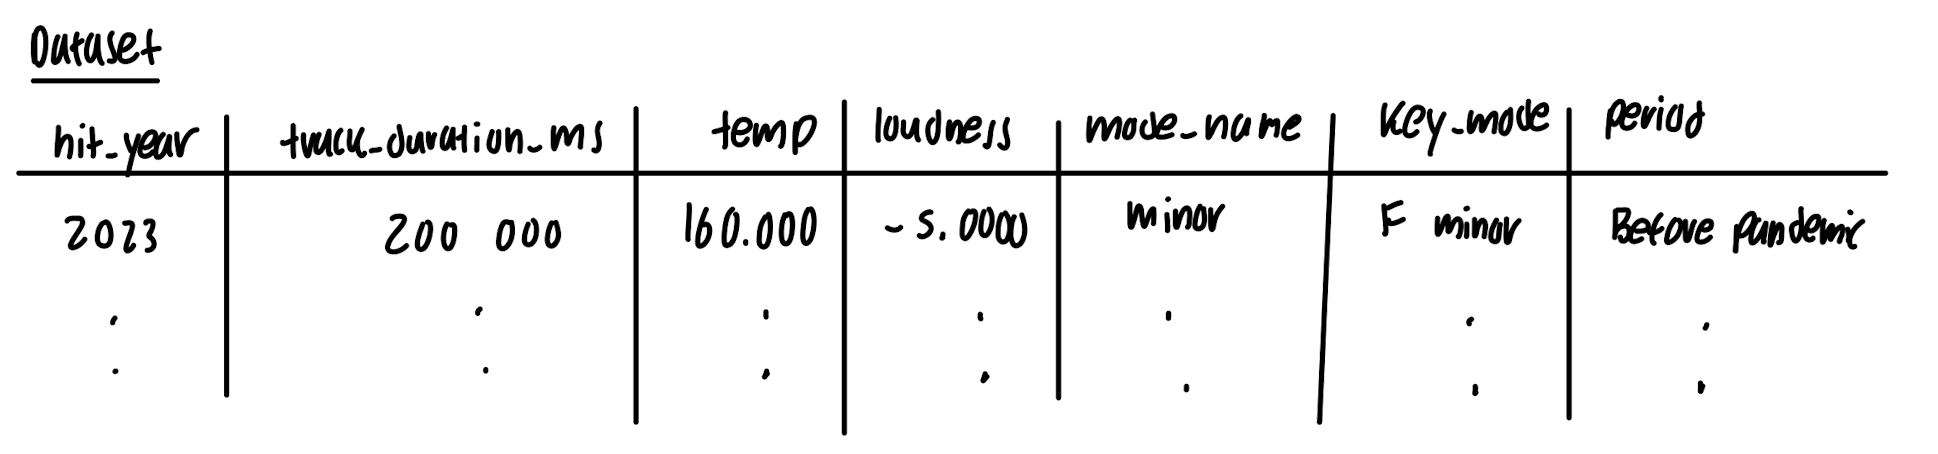 Dataset
hit_year track_duration_ms temp loudness mode_name Key_mode period
2023 200 000 160.000 -5.0000 minor F minor Before pandemic